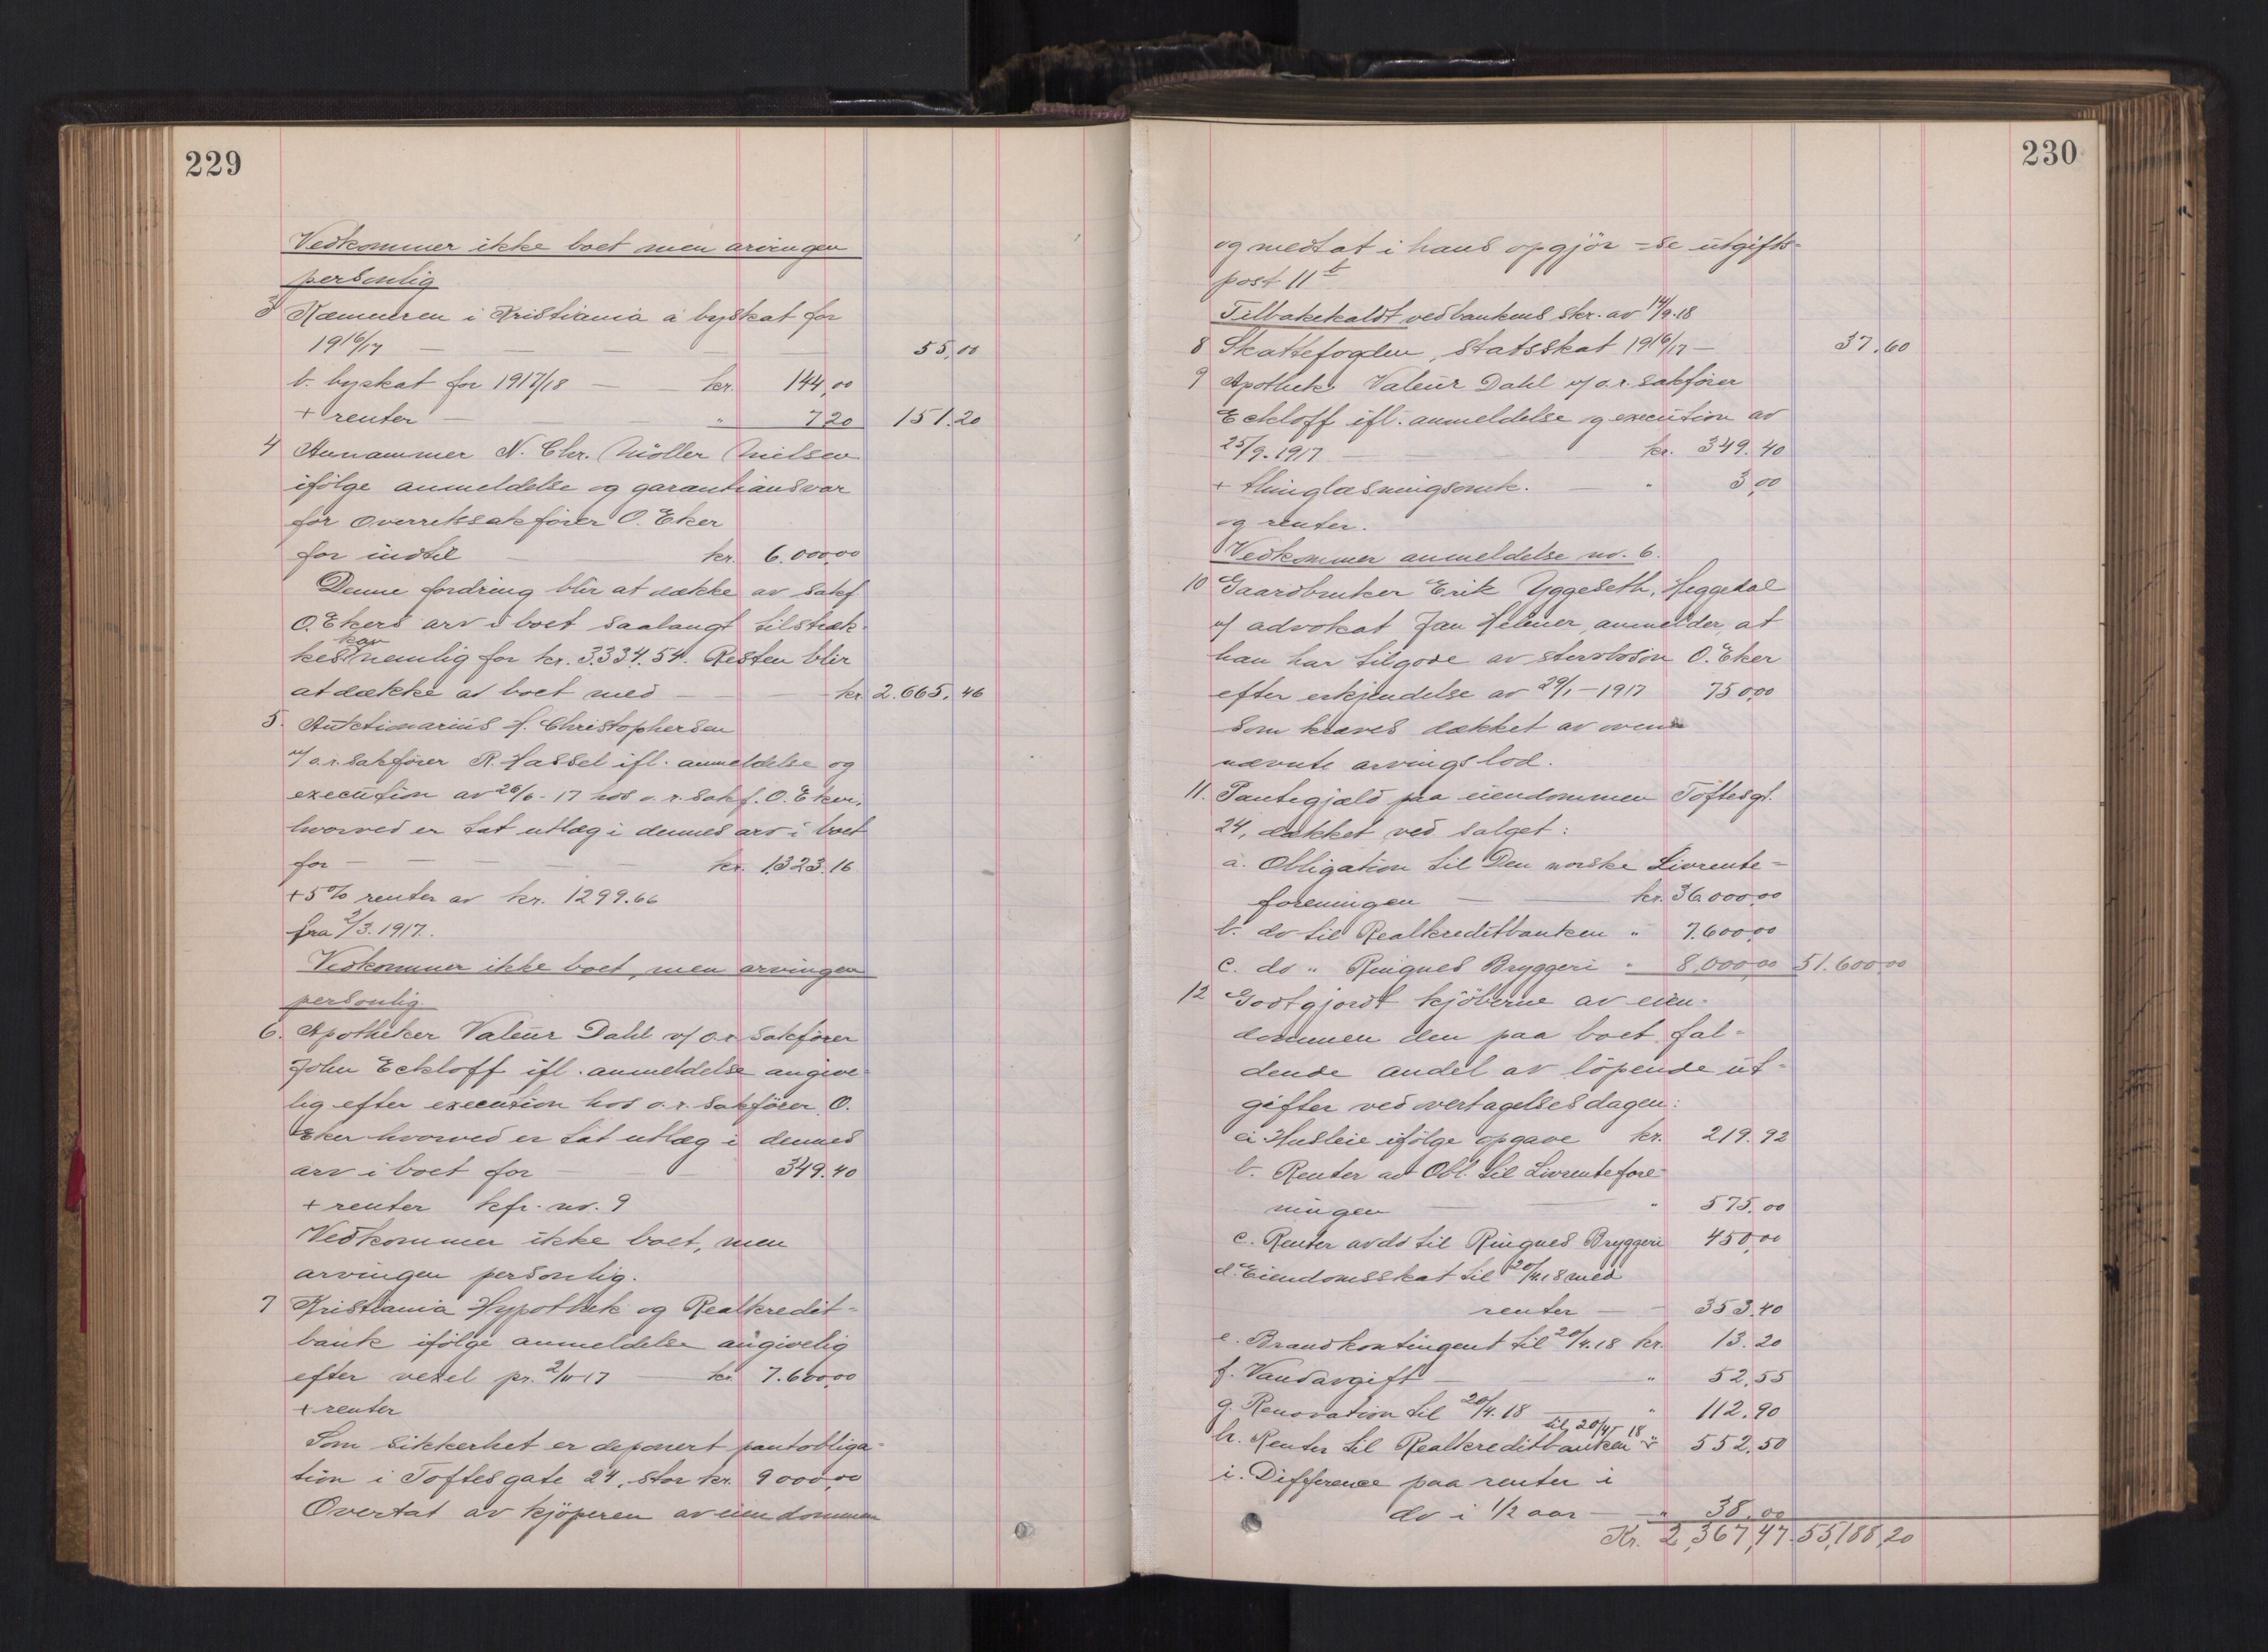 229
Vedkommer ikke boet men arvingen
personlig
3 Kæmneren i Kristiania a byskat for
1916/17 — — — — — 55,00
b. byskat for 1917/18 — — kr. 144,00
+ renter — — — " 7 20 151.20
4 Annammer N. Chr. Möller Nielsen
ifölge anmeldelse og garantiansvar
for Overretssakförer O. Eker
for indtil — kr. 6.000,00
Denne fordring blir at dække av sakf.
O. Ekers arv i boet saalangt tilstræk-
kes kan nemlig for kr. 3.334.54. Resten blir
at dække av boet med — — kr. 2.665,46
5. Auktionarius H. Christophersen
v/ o.r.sakförer R. Hassel ifl. anmeldelse og
execution av 26/6-17 hos o.r.sakf. O. Eker,
hvorved er tat utlæg i dennes arv i boet
for — — — — — kr. 1.323.16
+ 5% renter av kr. 1299.66
fra 2/3.1917.
Vedkommer ikke boet, men arvingen
personlig.
6. Apotheker Valeur Dahl v/ o.r.sakförer
John Eckloff ifl. anmeldelse angive-
lig efter execution hos o.r.sakförer O.
Eker hvorved er tat utlæg i dennes
arv i boet for — — — 349.40
+ renter kfr. nr. 9
Vedkommer ikke boet, men
arvingen personlig.
7 Kristiania Hypothek og Realkredit-
bank ifölge anmeldelse angivelig
efter vexel pr. 2/11-17 — kr 7.600,00
+ renter
Som sikkerhet er deponert pantobliga-
tion i Toftesgate 24, stor kr. 9000,00
Overtat av kjöperen av eiendommen
230
og medtat i hans opgjör - se utgifts-
post 11 b
Tilbakekaldt ved bankens skr. av 14/9.18
8 Skattefogden, statsskat 1916/17 — 37.60
9 Apothek. Valeur Dahl v/ o.r.sakförer
Eckloff ifl. anmeldelse og execution av
25/9.1917 — — — kr. 349.40
+ thinglæsningsomk. — " 3,00
og renter.
Vedkommer anmeldelse nr. 6.
10 Gaardbruker Erik Yggeseth, Heggedal
v/ advokat Jan Helmer, anmelder at
han har tilgode av stervboson O. Eker
efter erkjendelse av 29/1-1917 750,00
som kræves dækket av oven-
nævnte arvingslod.
11. Pantegjæld paa eiendommen Toftesgt.
24, dækket ved salget:
a. Obligation til Den norske Livrente-
foreningen — — kr. 36.000,00
b. do til Realkreditbanken " 7.600,00
c. do " Ringnes Bryggeri " 8,000,00 51.600,00
12 Godtgjordt kjöberne av eien-
dommen den paa boet fal-
dende andel av löpende ut-
gifter ved overtagelsesdagen:
a. Husleie ifölge opgave kr. 219.92
b. Renter av Obl. til Livrentefore-
ningen — — " 575.00
c. Renter av do til Ringnes Bryggeri 450,00
d. Eiendomsskat til 20/4.18 med
renter — — 353.40
e. Brandkontingent til 20/4.18 kr. 13.20
f. Vandavgift — — " 52.55
g. Renovation til 20/4.18 — " 112.90
h. Renter til Realkreditbanken til 20/4 18 " 552.50
i. Difference paa renter i
do i 1/2 aar — " 38.00
Kr. 2,367,47. 55,188,20